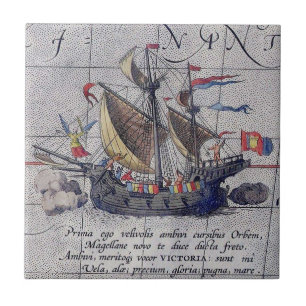 I - NANT
Prima ego velivolis ambivi cursibus Orbem,
Magellane novo te duce ducta freto.
Ambivi, meritoq₃ vocor VICTORIA: sunt mi
Vela, alæ; precium, gloria; pugna, mare.